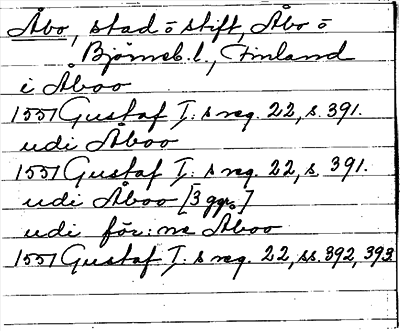 Åbo, stad ō stift, Åbo ō
Björneb. l., Finland
i Åboo
1551 Gustaf I:s reg. 22, s. 391.
udi Åboo
1551 Gustaf I:s reg. 22, s. 391.
udi Åboo [3 ggr.]
udi för:ne Åboo
1551 Gustaf I:s reg. 22, ss. 392, 393